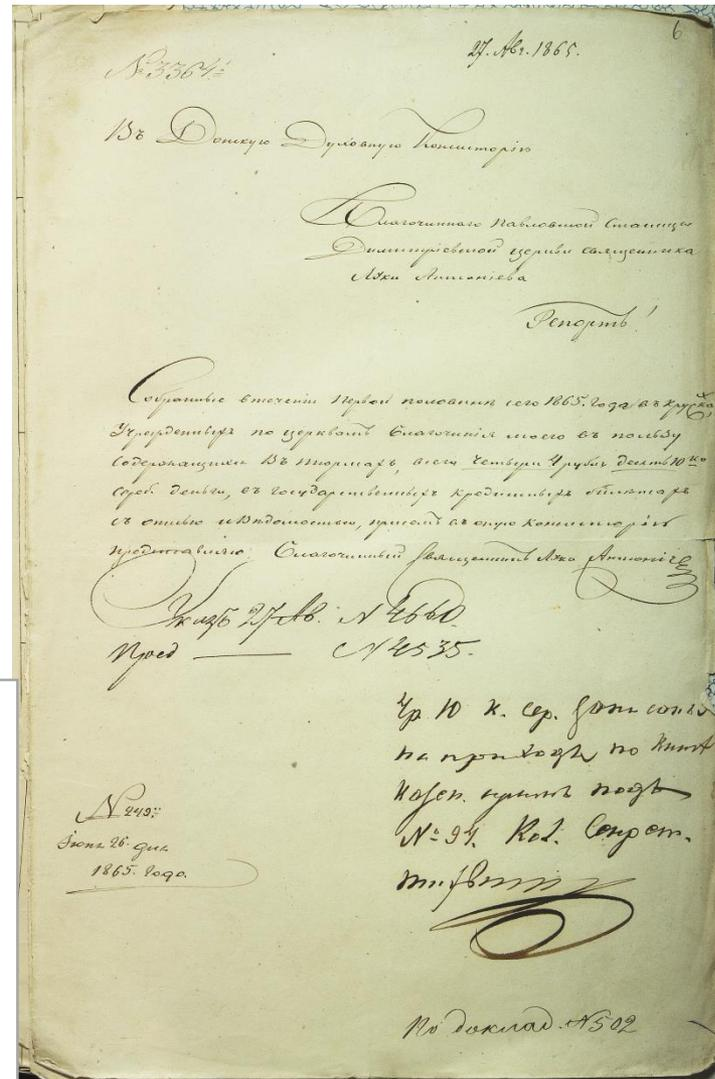 6
27. Авг. 1865.
№ 3364.
Въ Донскую Духовную Консисторію
Благочиннаго Павловской Станицы
Димитріевской церкви священника
Луки Антоніева
Репортъ!
Собранные втеченіи Первой половины сего 1865. года въ кружки,
Учрежденныхъ по церквамъ Благочинія моего въ пользу
содержащихся Въ тюрмахъ, всего четыри 4 рубли десять 10 ко
сереб. деньги, въ государственныхъ кредитныхъ билетахъ
съ описью и Вѣдомостью, присемъ въ оную Консисторію
представляю: Благочинный Священникъ Лука Антоніе
Указъ 27 Ав. N 4660.
Пред N 4535.
4 р. 10 к. сер. записаны
на приходъ по книгѣ
подъ
№ 94. Кол. Секрет.
N 249.
Іюня 26. дня
1865. года.
По доклад. N 502